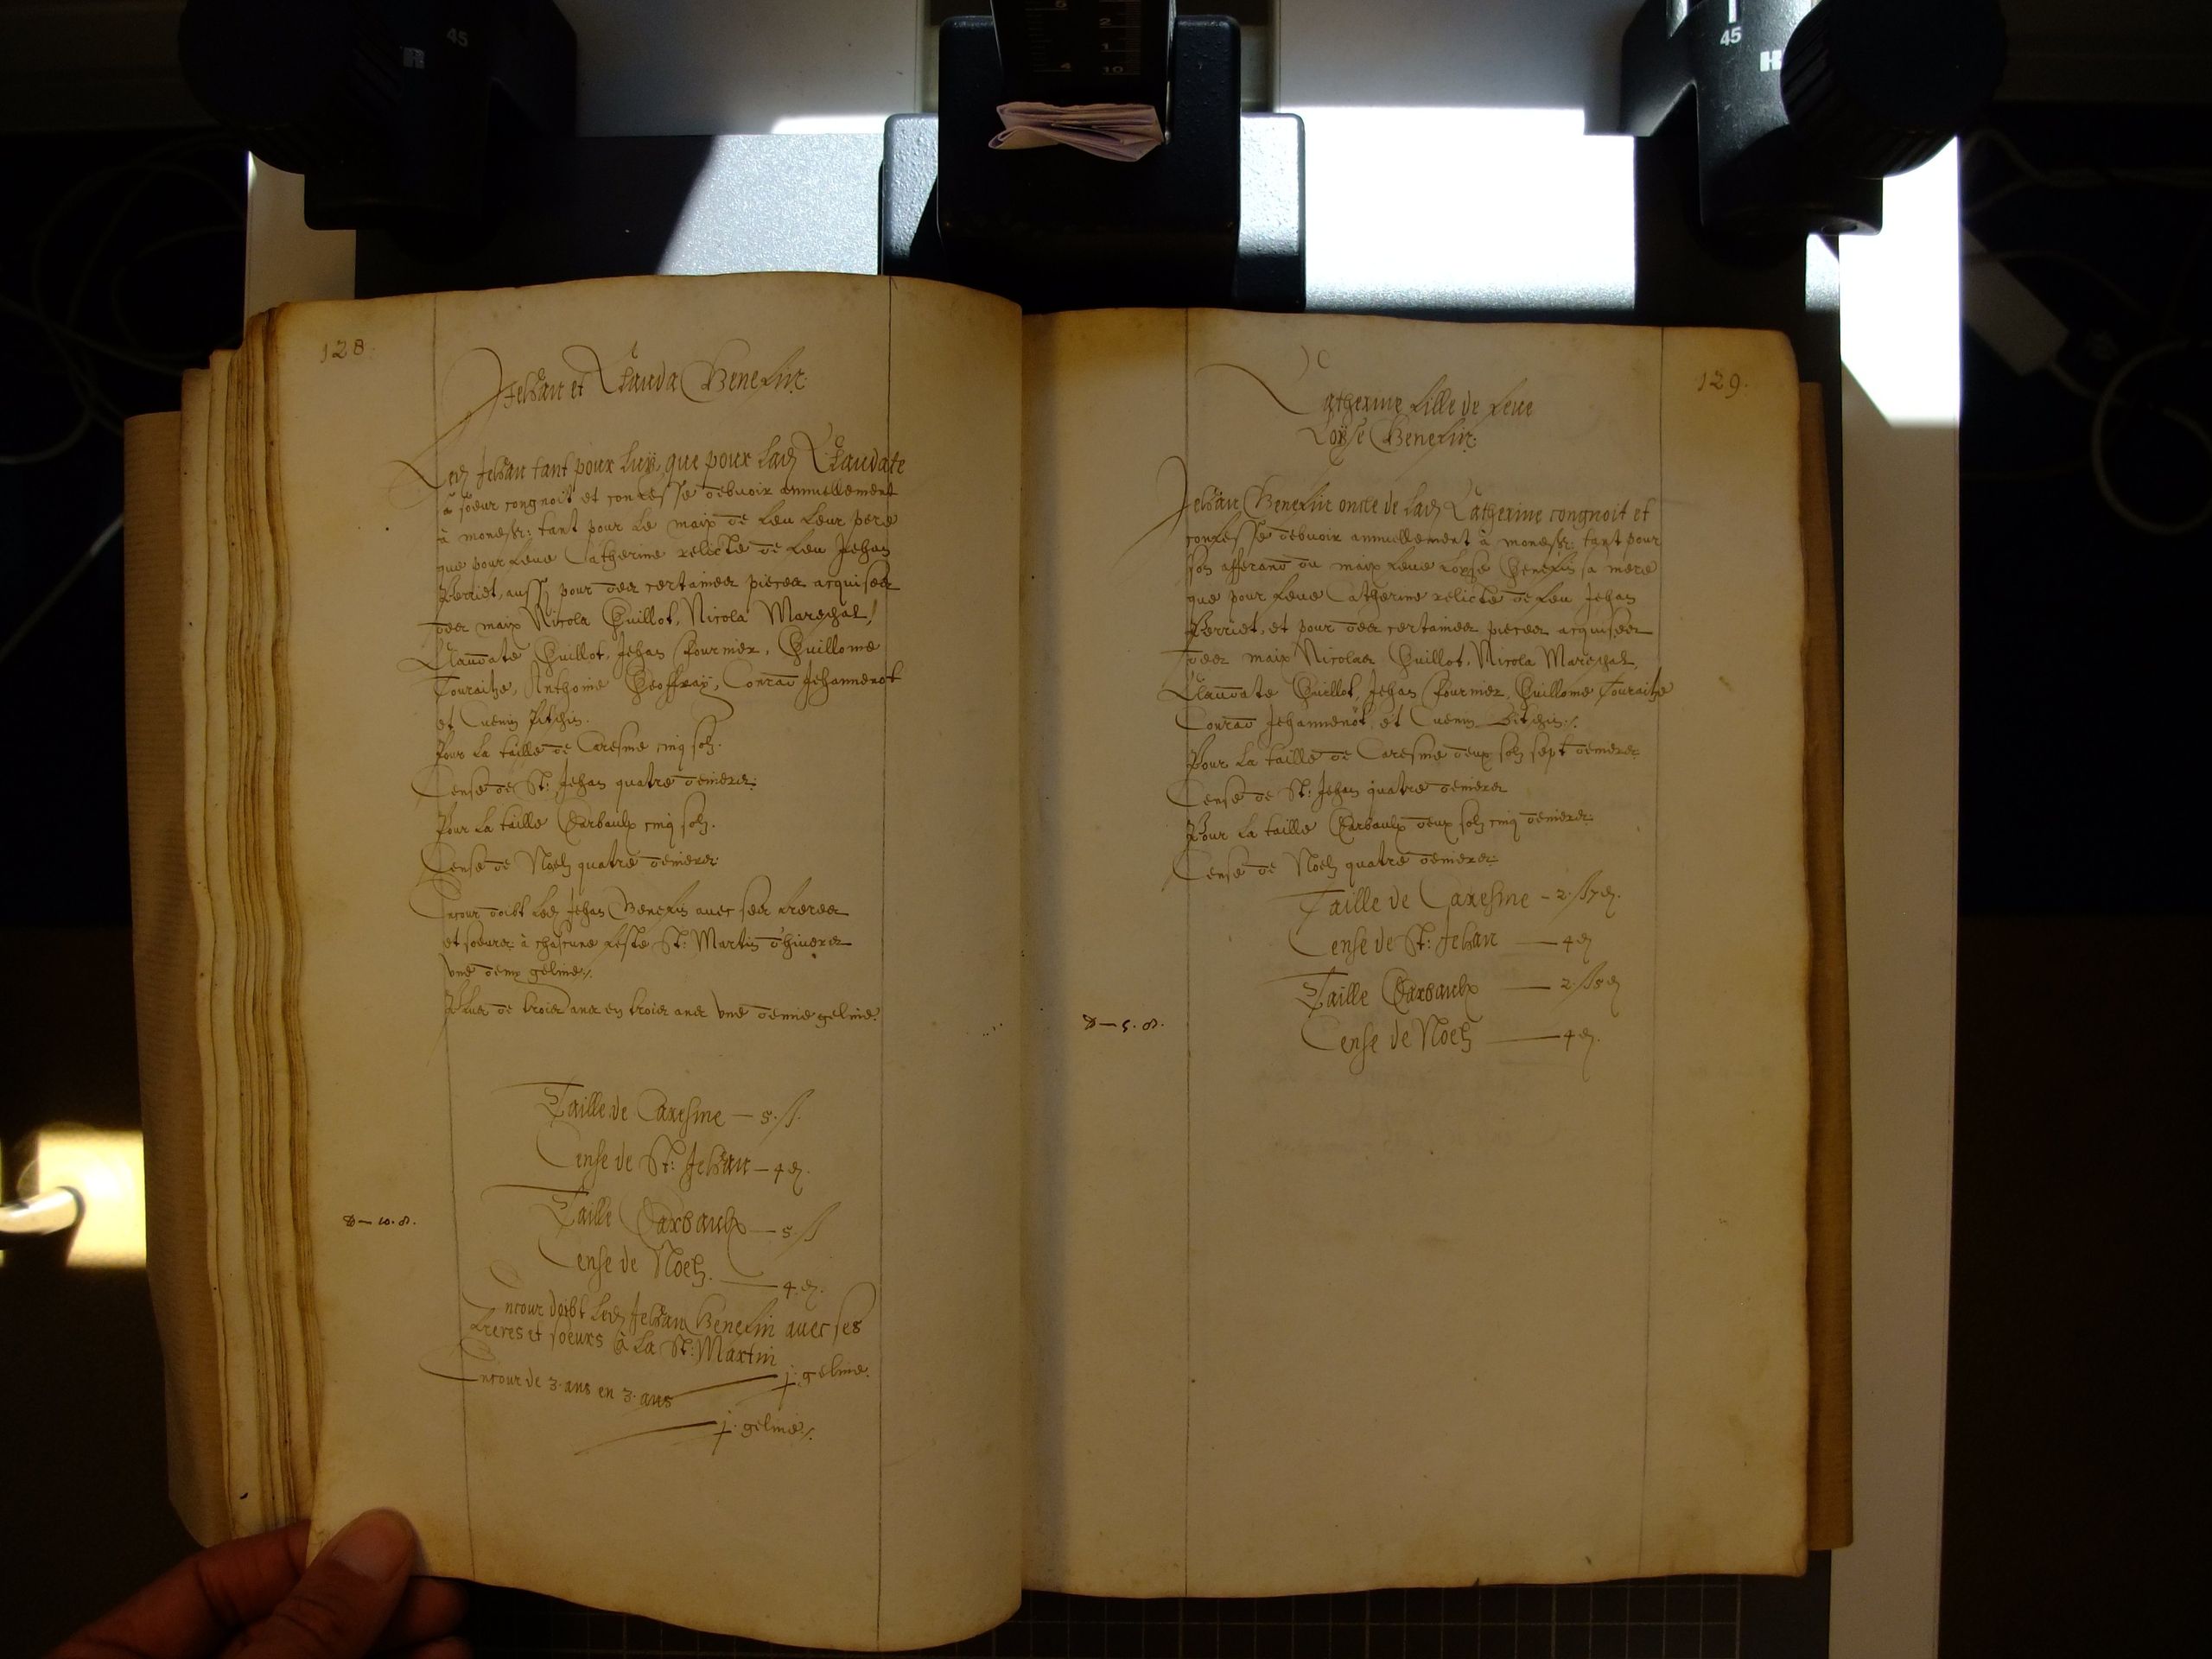 128.
Jehan et Clauda Benelin.
Led. Jehan tant pour luy, que pour lad. Claudate
sa soeur congnoit et confesse debvoir annuellement
à monessr: tant pour le maix de feu leur pere
que pour feue Catherine relicte de feu Jehan
Perriet, aussy pour des certaines pieces acquises
des maix Nicola Guillot, Nicola Mareschal,
Claudate Guillot, Jehan Fournier, Guillome
Touraitze, Anthoine Geoffray, Conrad Jehannenot
et Cuenin Pitchin.
Pour la taille de Caresme cinq solz.
Cense de St: Jehan quatre deniers.
Pour la taille Barbaulx cinq solz.
Cense de Noelz quatre deniers.
Encour doibt led. Jehan Benelin avec ses freres
et soeurs à chascune feste St: Martin d'hivers
une demy geline.
Plus de trois ans en trois ans une demie geline.
Taille de Caresme — 5. ß.
Cense de St: Jehan — 4 d.
Taille Barbaulx — 5. ß
Cense de Noelz. — 4. d.
D — 10. 8.
Encour doibt led. Jehan Benelin avec ses
freres et soeurs à la St: Martin
j. geline.
Encour de 3. ans en 3. ans
j. geline.
129.
Catherine fille de feue
Loÿse Benelin.
Jehan Benelin oncle de lad. Catherine congnoit et
confesse debvoir annuellement à monessr: tant pour
son afferand du maix feue Loyse Benelin sa mere
que pour feue Catherine relicte de feu Jehan
Perriet, et pour des certaines pieces acquises
des maix Nicolas Guillot, Nicola Mareschal,
Claudate Guillot, Jehan Fournier, Guillome Touraitze
Conrad Jehannenot, et Cuenin Pitchin.
Pour la taille de Caresme deux solz sept deniers
Cense de St: Jehan quatre deniers
Pour la taille Barbaulx deux solz cinq deniers.
Cense de Noelz quatre deniers.
Taille de Caresme — 2. ß 7 d.
Cense de St: Jehan — 4 d
Taille Barbaulx — 2. ß 5 d
D — 5. 8.
Cense de Noelz — 4 d.